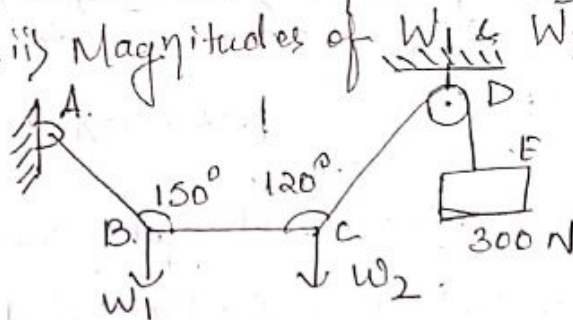 ii) Magnitudes of W1 & W
A.
D
E
150° 120°
B. C
300 N
W1 W2.